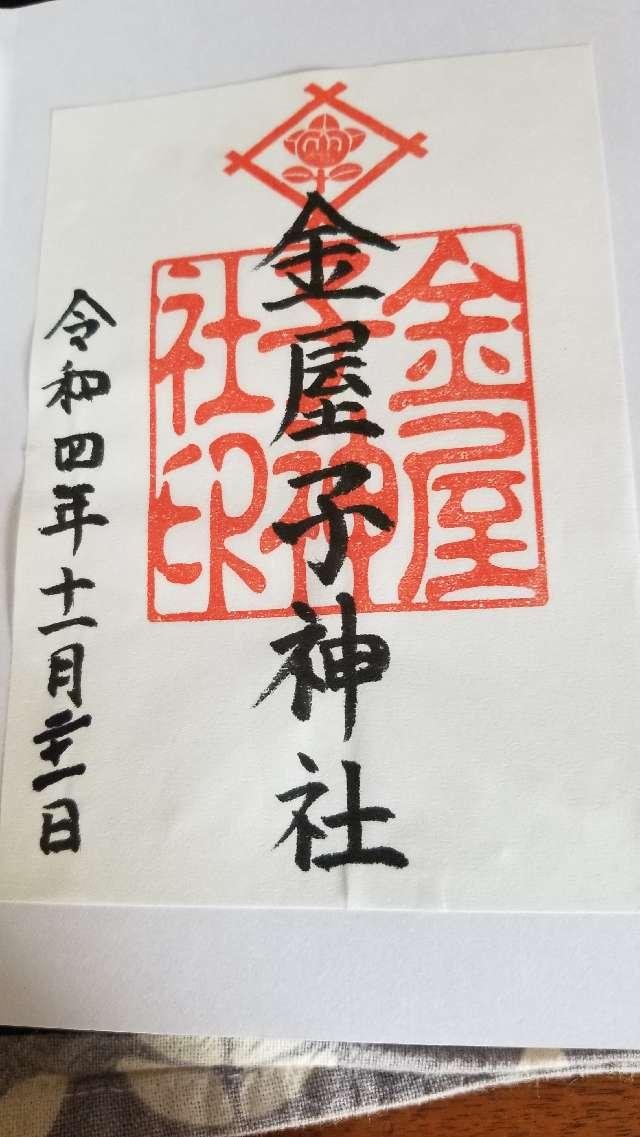 金屋子神社
令和四年十一月二十一日
金屋
子神
社印